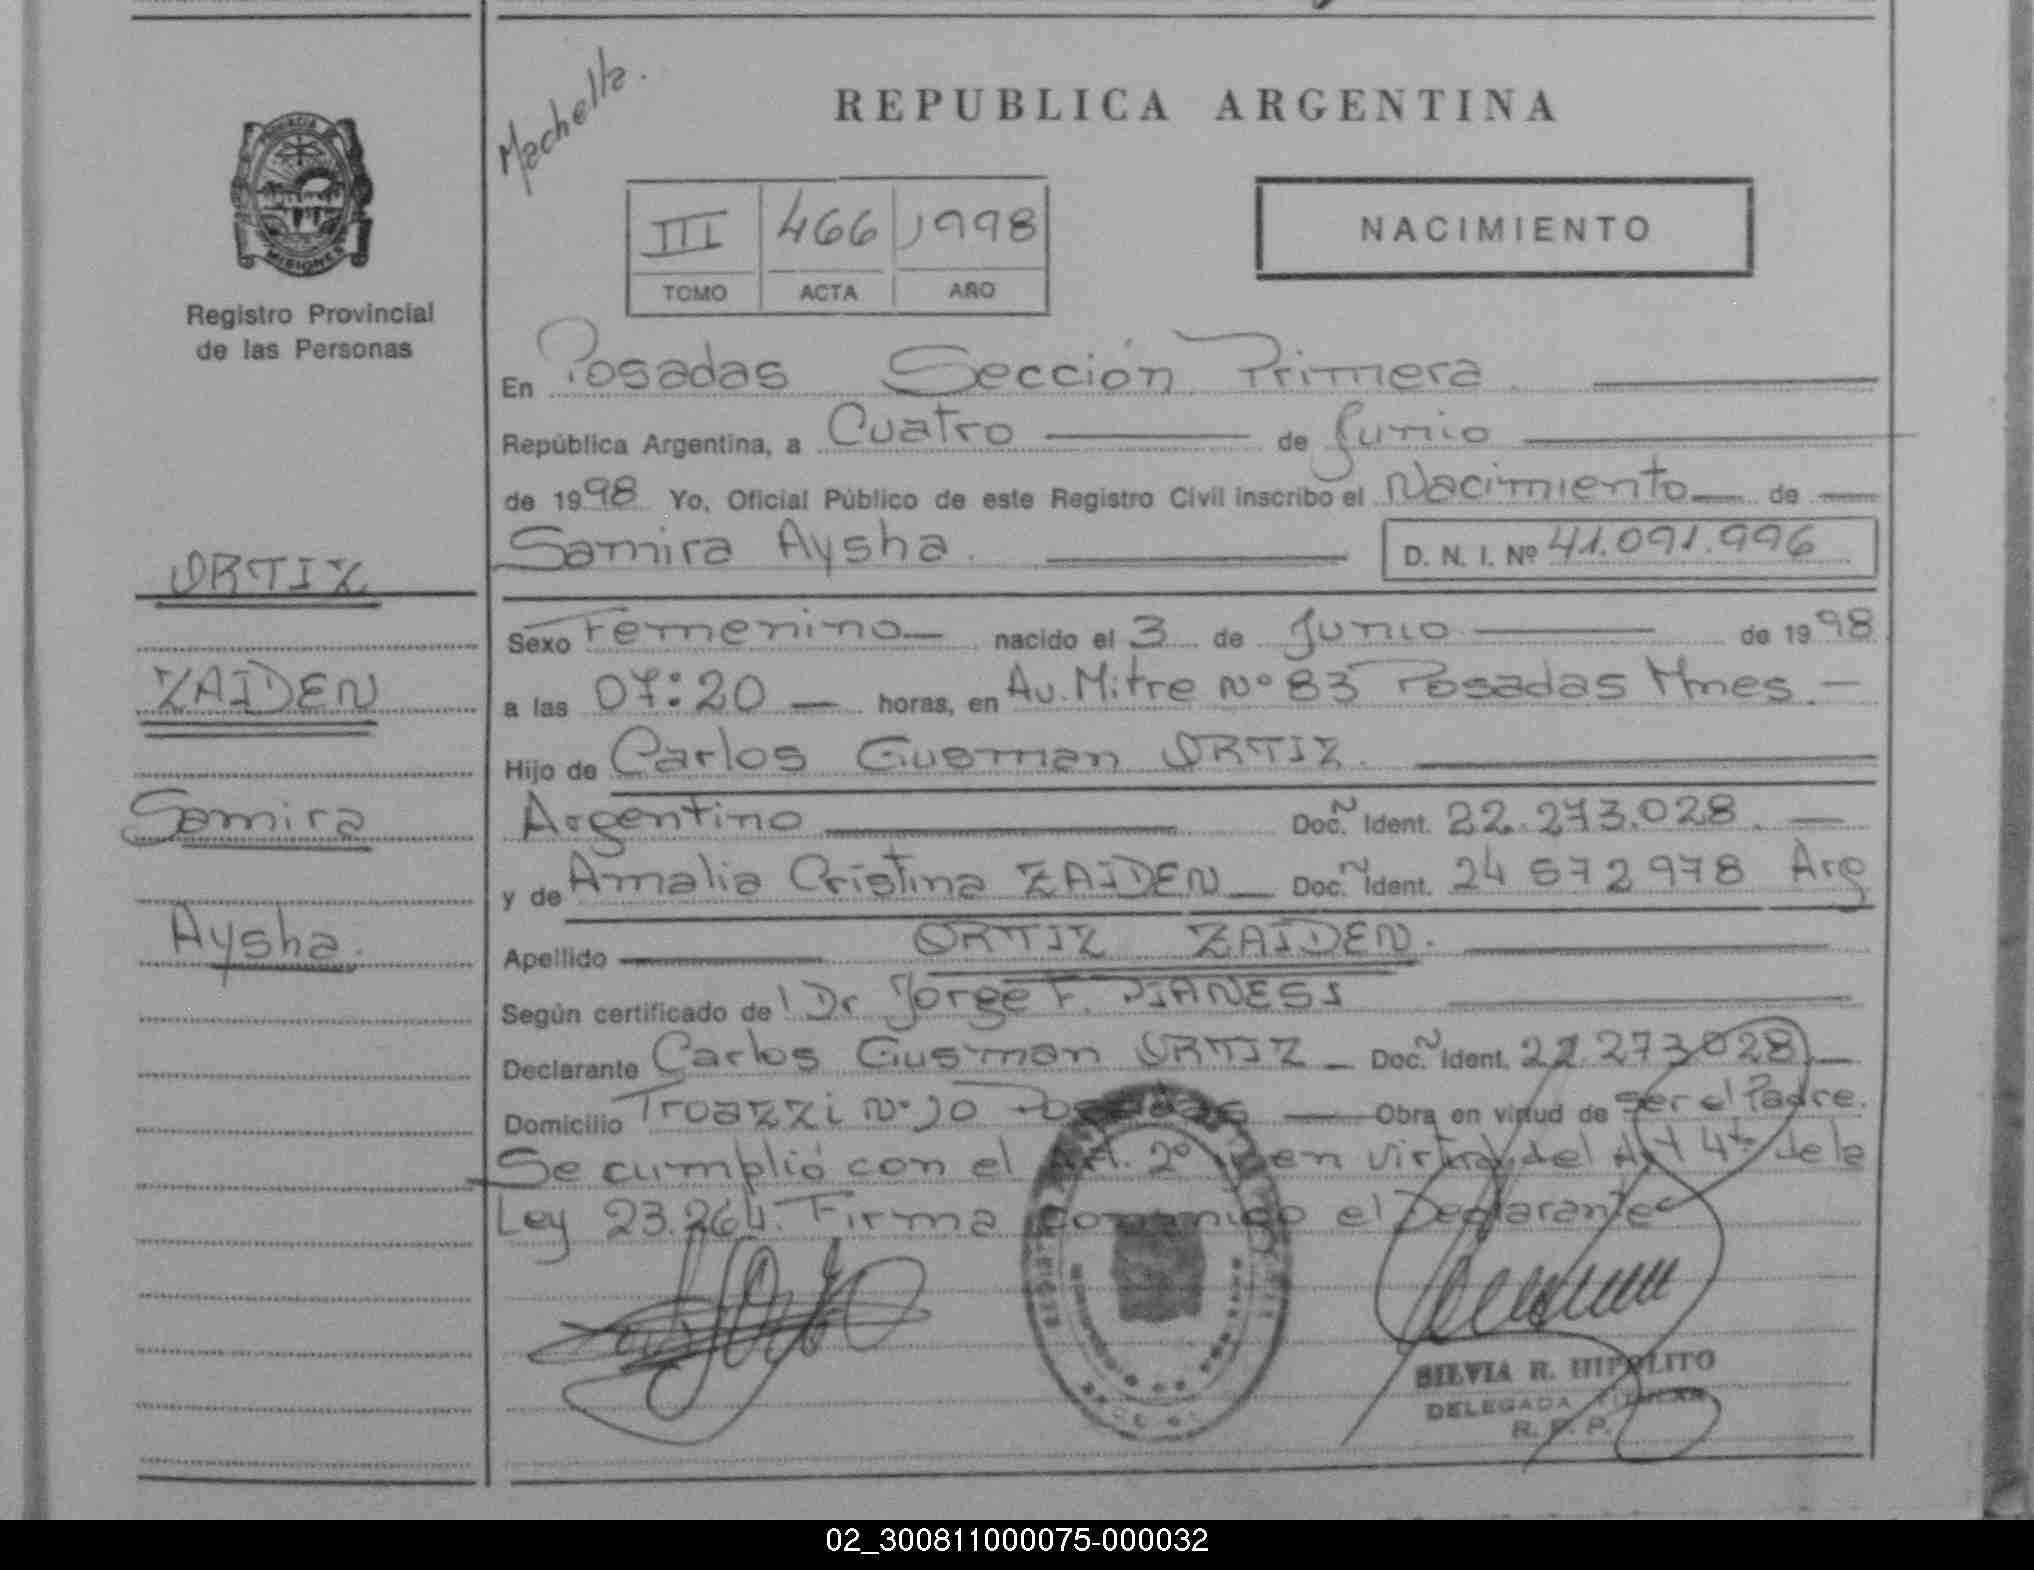 Machella.
REPUBLICA ARGENTINA
PROVINCIA DE
MISIONES
III 466 1998
TOMO ACTA AÑO
NACIMIENTO
Registro Provincial
de las Personas
En Posadas Sección Primera
República Argentina, a Cuatro de Junio
de 1998 Yo, Oficial Público de este Registro Civil inscribo el Nacimiento de
Samira Aysha. D. N. I. Nº 41.091.996
ORTIZ
ZAIDEN
Samira
Aysha.
Sexo Femenino nacido el 3 de Junio de 1998
a las 07:20 horas, en Av. Mitre Nº 83 Posadas Mnes.
Hijo de Carlos Gusman ORTIZ.
Argentino Doc. Ident. 22.273.028.
y de Amalia Cristina ZAIDEN Doc. Ident. 24 572 978 Arg
Apellido ORTIZ ZAIDEN.
Según certificado de l Dr Jorge F. PIANESI
Declarante Carlos Gusman ORTIZ Doc. Ident. 22.273.028
Domicilio Troazzi Nº 10 Posadas Obra en virtud de ser el Padre.
Se cumplió con el Art. 2º y en virtud del Art 4to de la
Ley 23.264. Firma conmigo el Declarante
SILVIA R. HIPOLITO
DELEGADA TITULAR
R. P. P.
02_300811000075-000032